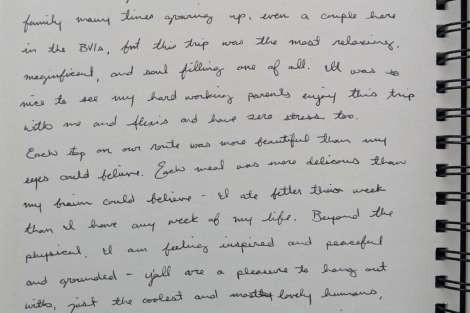 family many times growing up, even a couple here
in the BVIs, but this trip was the most relaxing,
magnificent, and soul filling one of all. It was so
nice to see my hard working parents enjoy this trip
with me and Alexis and have zero stress too.
Each stop on our route was more beautiful than my
eyes could believe. Each meal was more delicious than
my brain could believe - I ate better this week
than I have any week of my life. Beyond the
physical, I am feeling inspired and peaceful
and grounded - y'all are a pleasure to hang out
with, just the coolest and lovely humans,